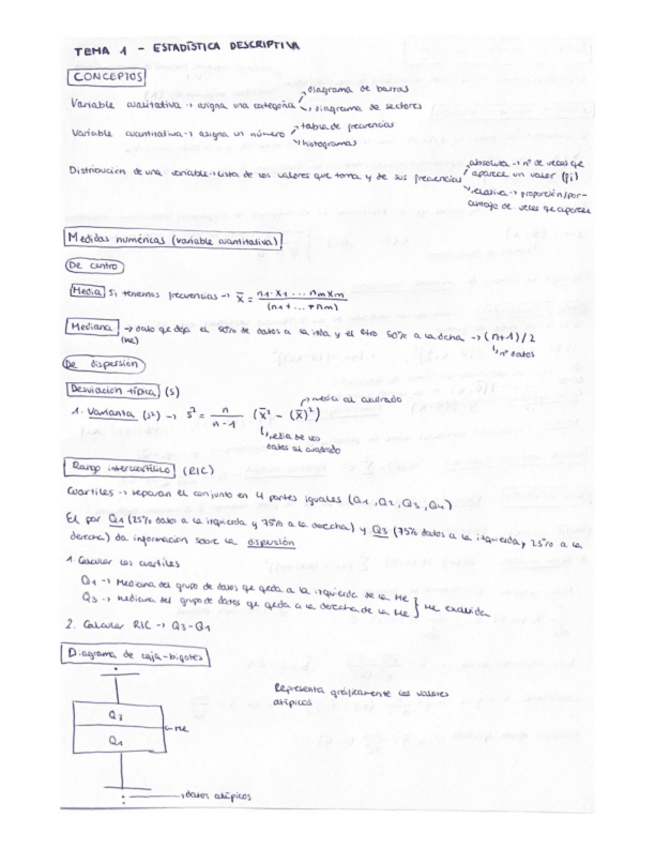 TEMA 1 - ESTADÍSTICA DESCRIPTIVA
CONCEPTOS
Variable cualitativa → asigna una categoría → diagrama de barras
→ diagrama de sectores
Variable cuantitativa → asigna un número → tabla de frecuencias
→ histogramas
Distribución de una variable → lista de los valores que toma y de sus frecuencias → absoluta → nº de veces que
aparece un valor (fi)
→ relativa → proporción/por-
centaje de veces que aparece
Medidas numéricas (variable cuantitativa)
De centro
Media Si tenemos frecuencias → x̄ = n1·x1 + ... nm xm / (n1 + ... + nm)
Mediana → dato que deja el 50% de datos a la izda y el otro 50% a la dcha → (n+1)/2
(Me)
↳ nº datos
De dispersión
Desviación típica (s)
→ media al cuadrado
1. Varianza (s²) → s² = n / n-1 (x̄² - (x̄)²)
↳ media de los
datos al cuadrado
Rango intercuartílico (RIC)
Cuartiles → separan el conjunto en 4 partes iguales (Q1, Q2, Q3, Q4)
El par Q1 (25% datos a la izquierda y 75% a la derecha) y Q3 (75% datos a la izquierda, 25% a la
derecha) da información sobre la dispersión
1. Calcular los cuartiles
Q1 → Mediana del grupo de datos que queda a la izquierda de la Me
Q3 → mediana del grupo de datos que queda a la derecha de la Me } Me excluida
2. Calcular RIC → Q3-Q1
Diagrama de caja-bigotes
Representa gráficamente los valores
atípicos
Q3
← Me
Q1
→ datos atípicos